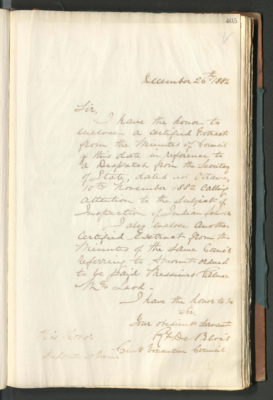 405
December 26th 1882
Sir,
I have the honor to
enclose a Certified Extract
from the Minutes of Council
of this date in reference to
a Despatch from the Secretary
of State, dated at Ottawa,
10th November 1882 Calling
attention to the Subject of
Inspection of Indian
I also enclose Another
Certified Extract from the
Minutes of the same
Referring to amount ordered
to be paid Messieurs
I have the honor
Sir
Your obedient Servant
Executive Council
His Honor